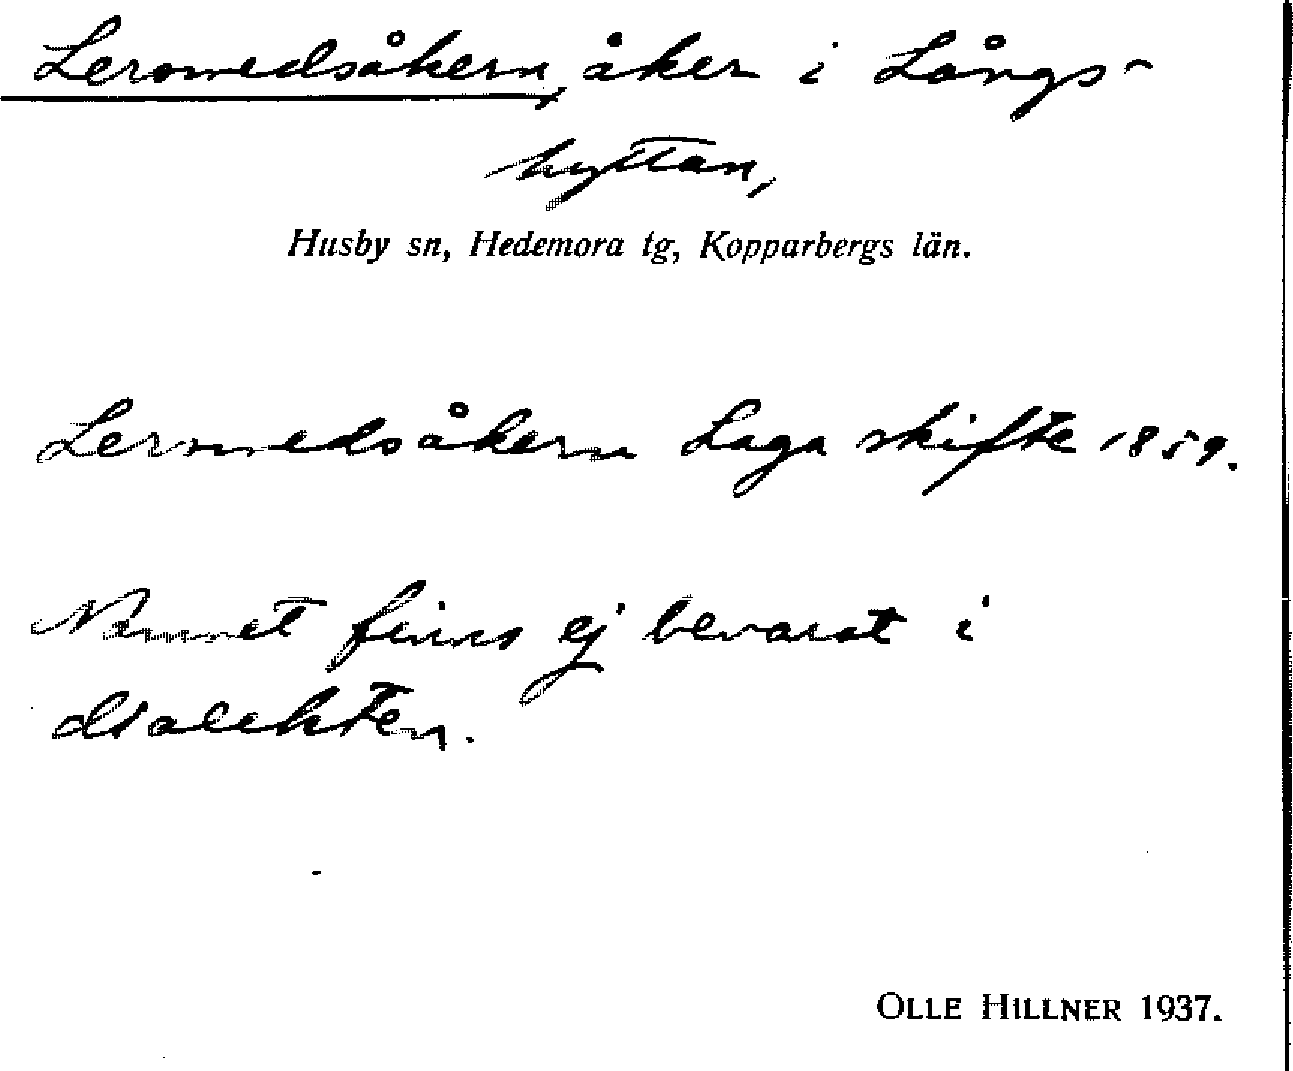 Lersmedsåkern, åker i Långs-
hyttan,
Husby sn, Hedemora tg, Kopparbergs län.
Lersmedsåkern Laga skifte 1859.
Namnet finns ej bevarat i
dialekten.
OLLE HILLNER 1937.